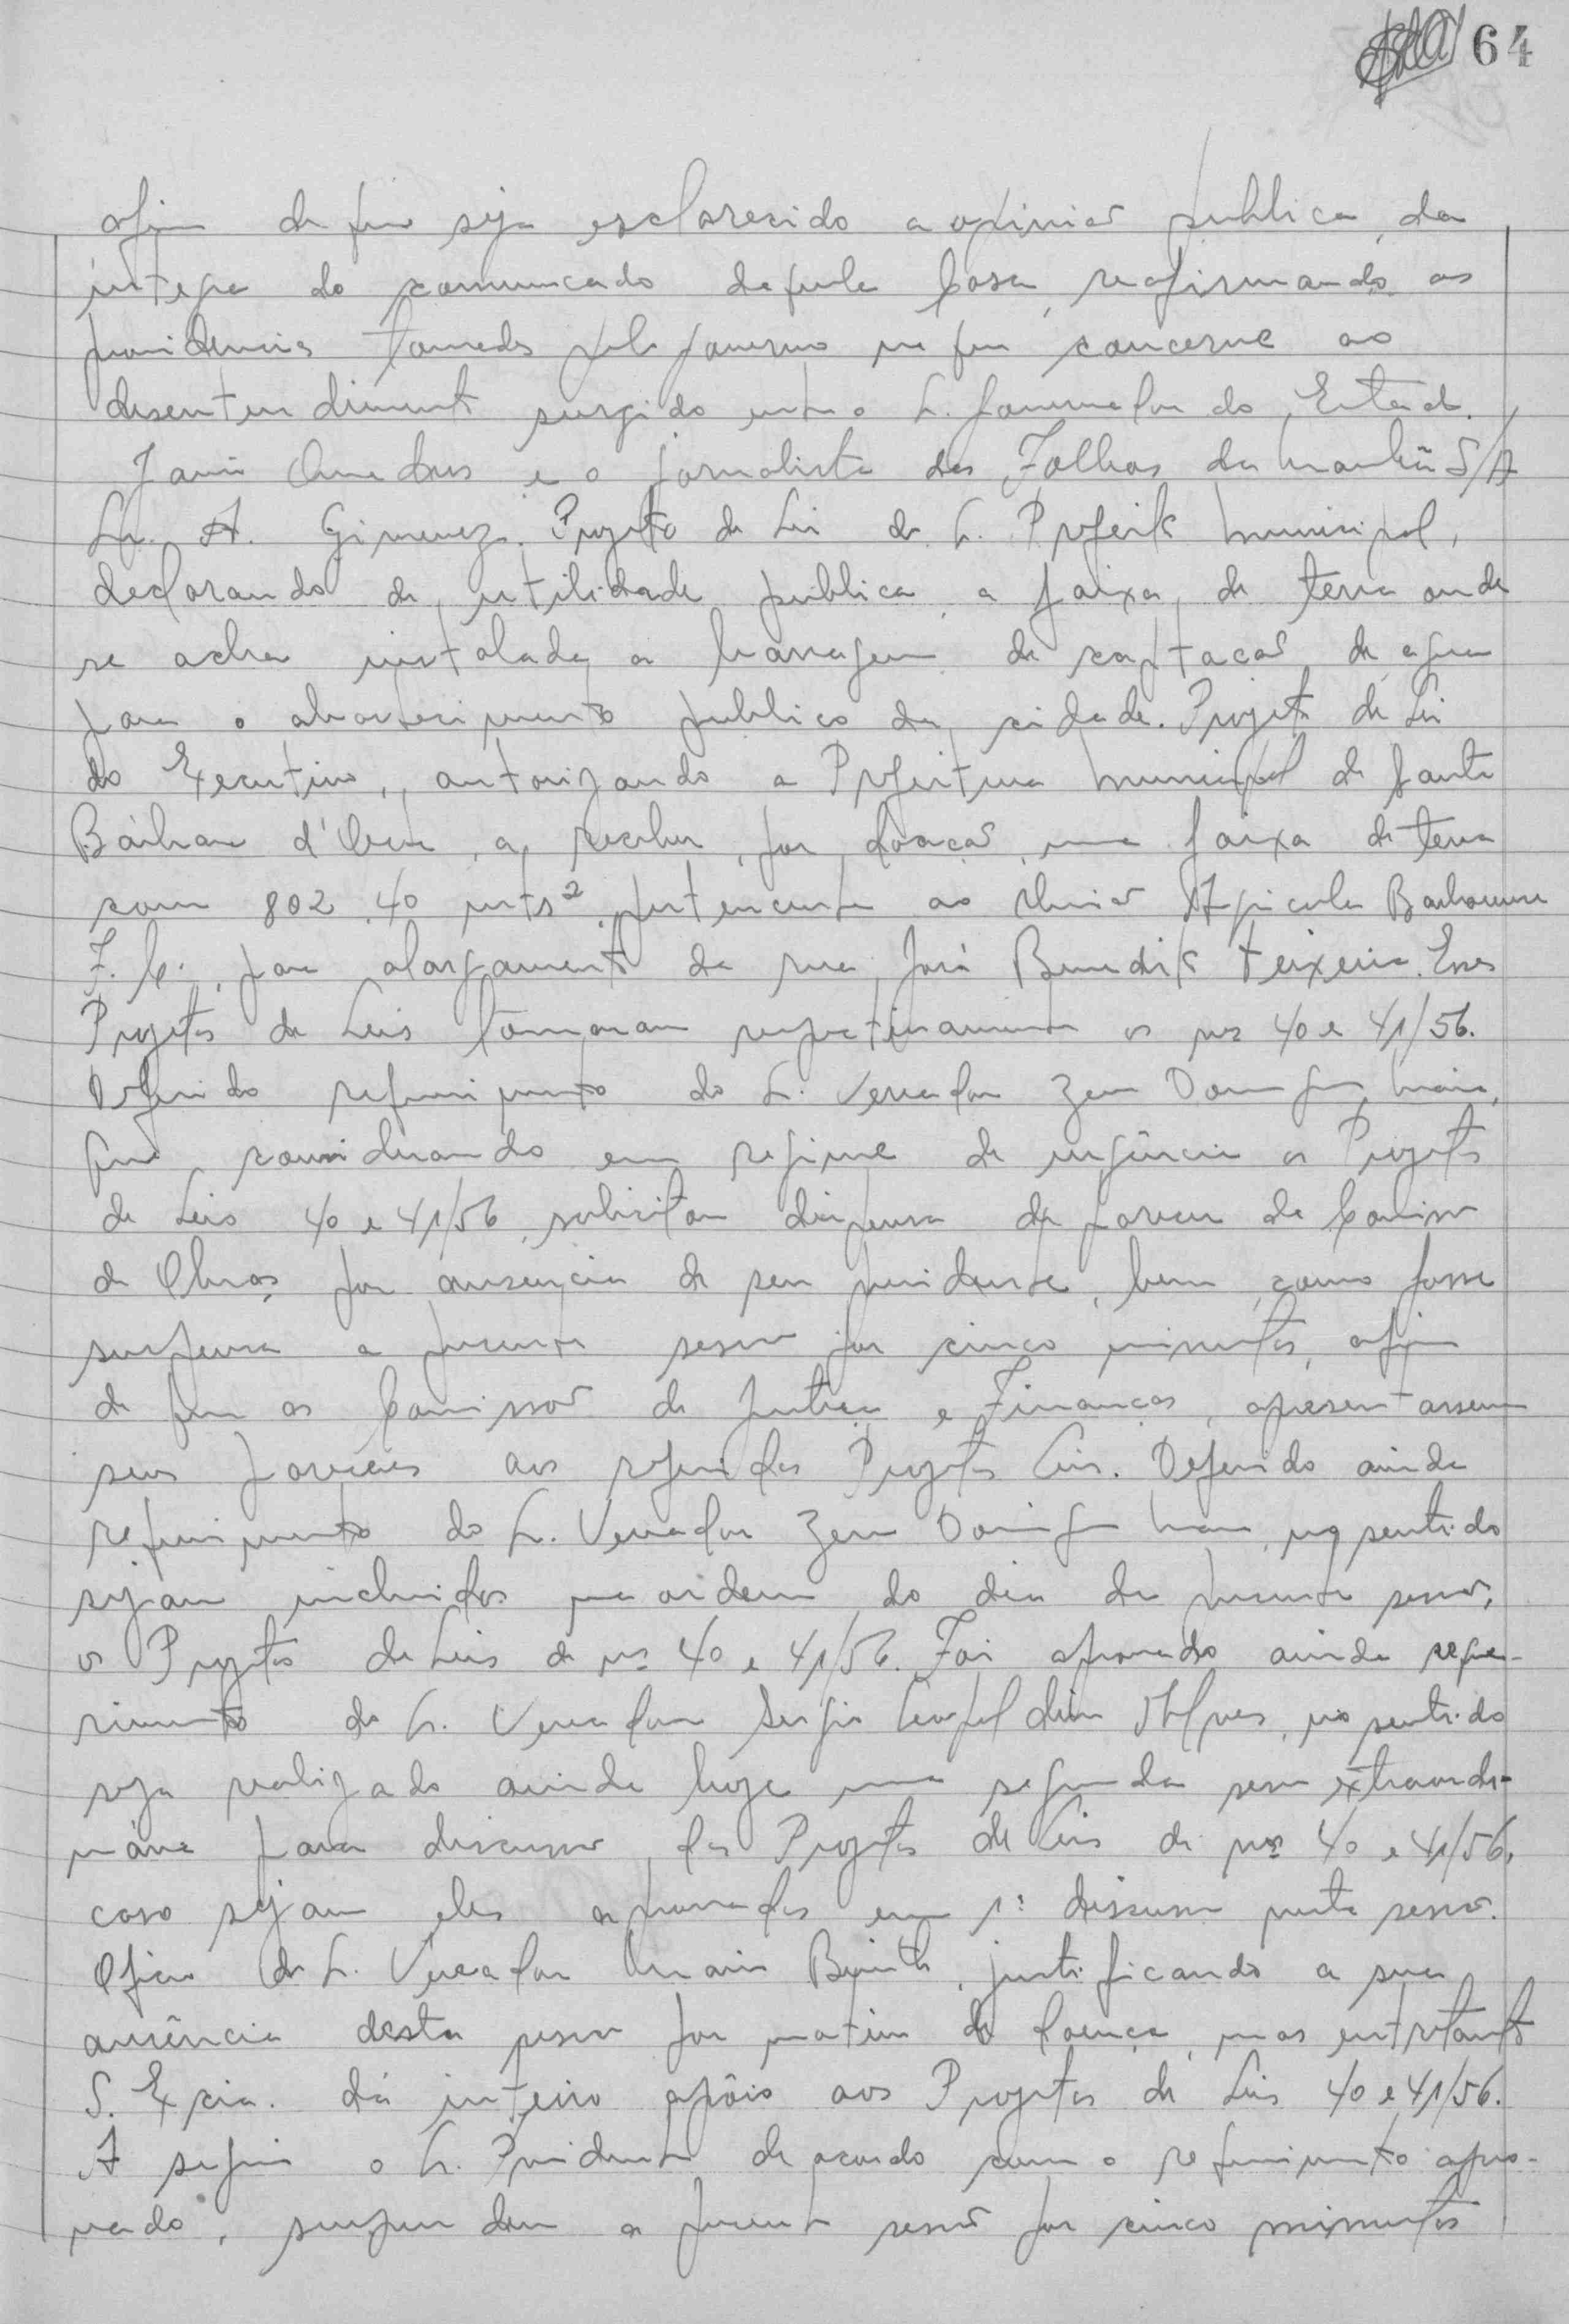 64
afim de que seja esclarecido a opinião publica, da
integra do comunicado daquela Casa, reafirmando as
providencias tomadas pelo governo no que concerne ao
desentendimento surgido entre o Sr. Governador do Estado.
Janio Quadros e o jornalista das Folhas da Manhã S/A
Sr. A. Gimenez. Projeto de Lei do Sr. Prefeito Municipal,
declarando de utilidade publica a faixa de terra onde
se acha instalada a barragem de captação de agua
para o abastecimento publico da cidade. Projeto de Lei
do Executivo, autorizando a Prefeitura Municipal de Santa
Bárbara d'Oeste, a receber, por doação, uma faixa de terra
com 802,40 mts², pertencente ao União Agricola Barbarense
F. C., para alargamento da rua José Benedito Teixeira. Esses
Projetos de Leis tomaram respectivamente os nos 40 e 41/56.
Deferido requerimento do Sr. Vereador Domingos
que considerando em regime de urgência os Projetos
de Leis 40 e 41/56, solicitou dispensa do parecer da Comissão
de Obras por ausencia de seu presidente, bem como fosse
suspensa a presente sessão por cinco minutos, afim
de que as Comissões de Justiça e Finanças, apresentassem
seus pareceres aos referidos Projetos Leis. Deferido ainda
requerimento do Sr. Vereador Domingos no sentido
sejam incluidos na ordem do dia da presente sessão,
os Projetos de Leis de nos 40 e 41/56. Foi aprovado ainda reque-
rimento do Sr. Vereador Sergio Leopoldino Alves, no sentido
seja realizado ainda hoje uma segunda sessão extraordi-
nária para discussão dos Projetos de Leis de nos 40 e 41/56,
caso sejam eles aprovados em 1ª discussão nesta sessão.
Oficio do Sr. Vereador justificando a sua
ausência desta sessão por motivo de doença, mas entretanto
S. Excia. dá inteiro apôio aos Projetos de Leis 40 e 41/56.
A seguir o Sr. Presidente de acordo com o requerimento apro-
vado, suspendeu a presente sessão por cinco minutos